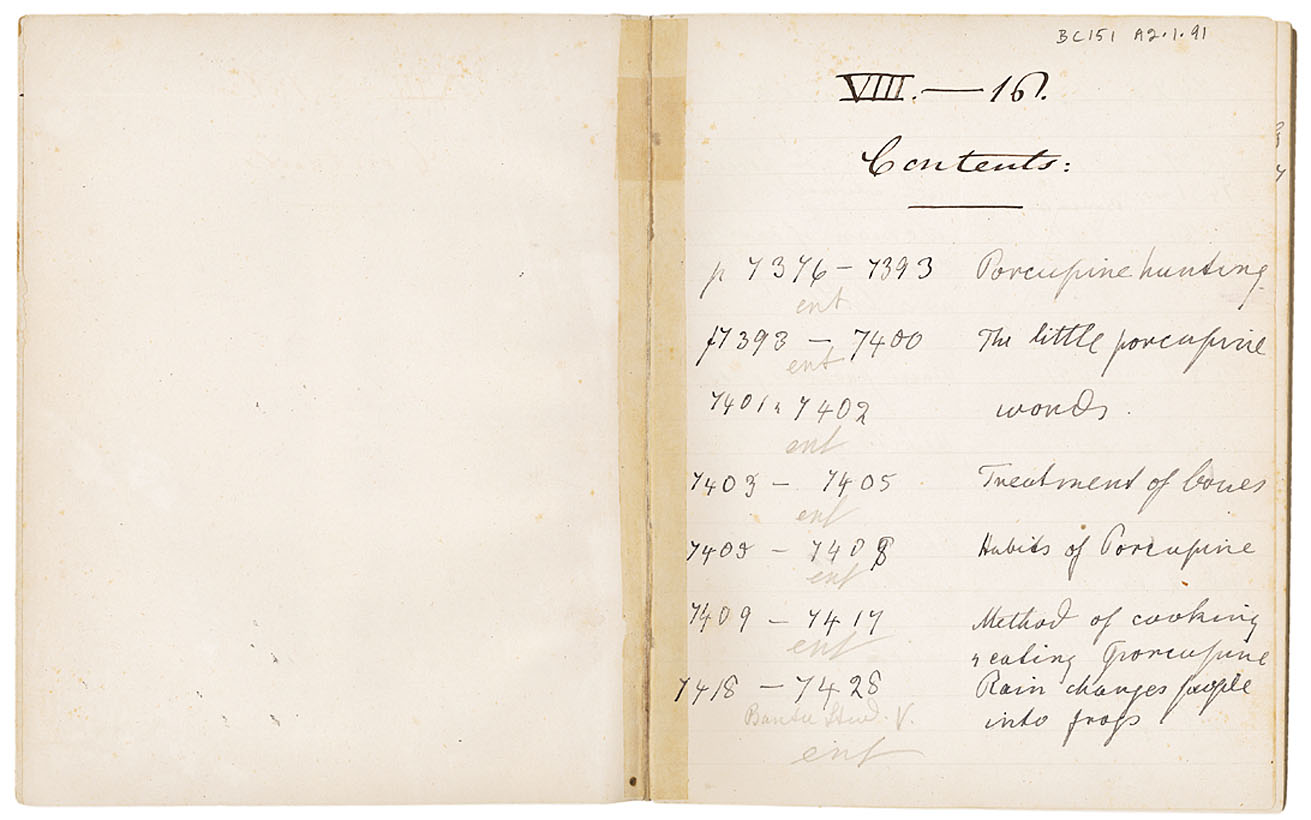 BC151 A2.1.91
VIII. — 16.
Contents:
p 7376 – 7393 Porcupine hunting.
ent
p7393 – 7400 The little porcupine
ent
7401 & 7402 words.
ent
7403 – 7405 Treatment of bones
ent
7405 – 7408 Habits of Porcupine
ent
7409 – 7417 Method of cooking
ent
& eating Porcupine
7418 – 7428 Rain changes people
Bantu Stud. V. into frogs
ent